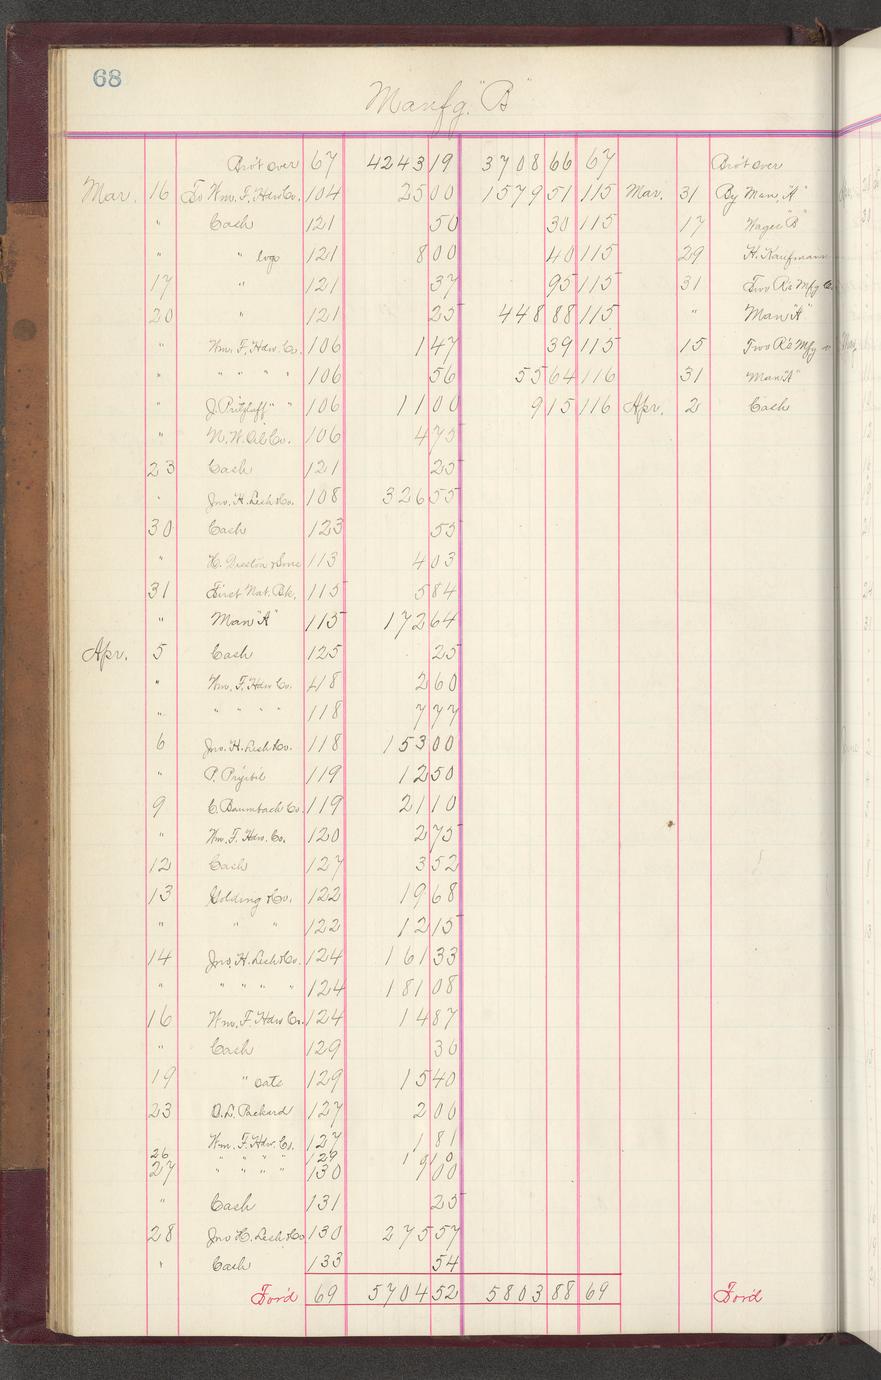 68
Manfg. "B"
Bro't over 67 4243 19 3708 66 67 Bro't over
Mar. 16 To Wm. F. Hdw Co. 104 25 00 1579 51 115 Mar. 31 By Man. "A"
" Cash 121 50 30 115 17 Wages "B"
" " logs 121 8 00 40 115 29 H. Kaufmann
17 " 121 37 95 115 31 Two Rs Mfg Co.
20 " 121 25 448 88 115 " Man "A"
" Wm. F. Hdw. Co. 106 1 47 39 115 15 Two R's Mfg
" " " " " 106 56 55 64 116 31 Man "A"
" J. Pritzlaff " " 106 11 00 9 15 116 Apr. 2 Cash
" N. W. Oil Co. 106 4 75
23 Cash 121 25
" Jno. H. Lesh & Co. 108 326 55
30 Cash 123 55
" H. Disston & Sons 113 4 03
31 First Nat. Bk. 115 5 84
" Man "A" 115 172 64
Apr. 5 Cash 125 25
" Wm. F. Hdw Co. 118 2 60
" " " " " 118 7 77
6 Jno. H. Lesh & Co. 118 153 00
" P. Pryibil 119 12 50
9 C. Baumbach Co. 119 21 10
" Wm. F. Hdw. Co. 120 2 75
12 Cash 127 3 52
13 Golding & Co. 122 19 68
" " " 122 12 15
14 Jno. H. Lesh & Co. 124 161 33
" " " " " 124 181 08
16 Wm. F. Hdw Co. 124 14 87
" Cash 129 36
19 " oats 129 15 40
23 O. L. Packard 127 2 06
Wm. F. Hdw. Co. 127 1 81
26 " " " " 129 1 91 0
27 " " " " 130 9 00
" Cash 131 25
28 Jno H. Lesh & Co 130 275 57
" Cash 133 54
For'd 69 5704 52 5803 88 69 For'd